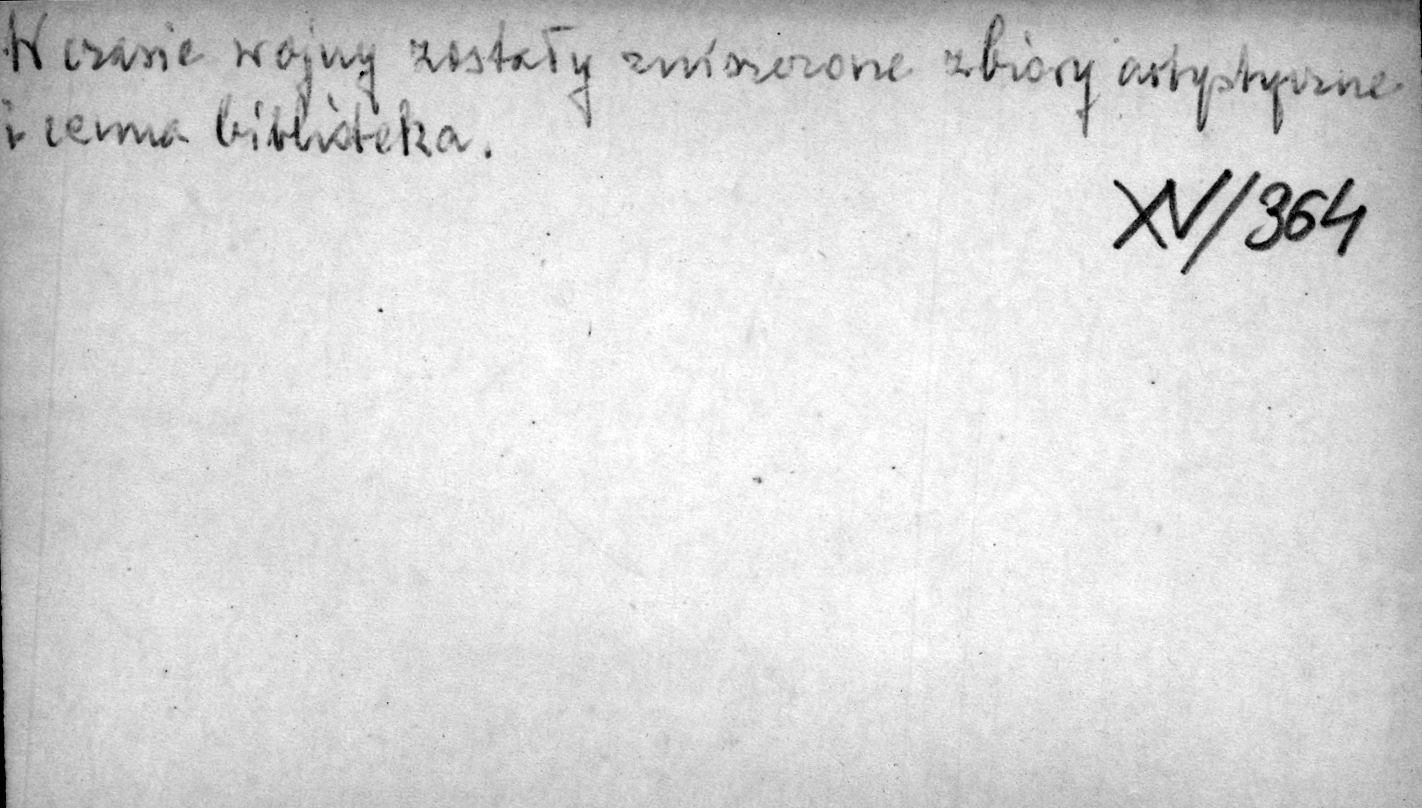 W czasie wojny zostały zniszczone zbiory artystyczne
i cenna biblioteka.
XV/364